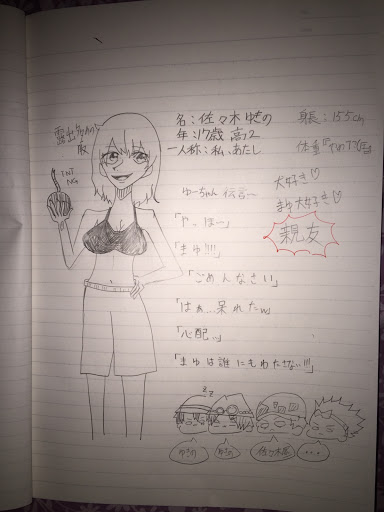 露出多めの
服
TNT
NG
名：佐々木ゆきの
年：17歳 高2
一人称：私、あたし
身長：155cm
大好き♡
まゆ大好き♡
親友
「やっほー」
「まゆ!!!!」
「ごめんなさい」
「はぁ…呆れたw」
「心配…」
「まゆは誰にもわたさない!!!」
z z
ゆきの
ゆきの
佐々木尾
・・・